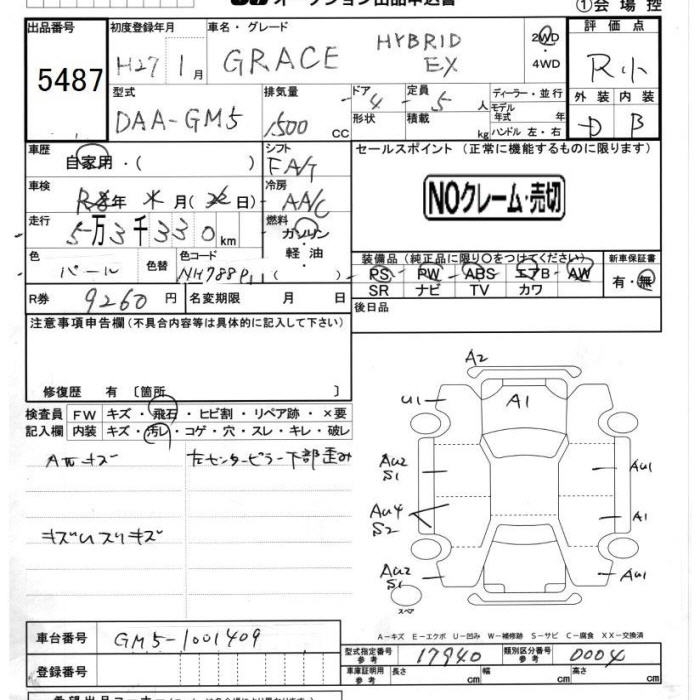 オークション出品申込書
①会場控
出品番号
5487
初度登録年月
H27 1月
車名・グレード
GRACE HYBRID EX
2WD
・
4WD
評価点
R小
外装 内装
D B
型式
DAA-GM5
排気量
1,500 CC
ドア 4
形状
定員 5 人
積載 kg
ディーラー・並行
モデル年式 年
ハンドル 左・右
車歴
自家用・( )
シフト
FA/T
セールスポイント (正常に機能するものに限ります)
NOクレーム・売切
車検
年 月 ( 日)
冷房
AA/C
走行
5万3千330km
燃料
ガソリン
軽・油
( )
色
パール
色替
色コード
NH788P
装備品 (純正品に限り〇をつけてください)
PS PW ABS エアB AW
SR ナビ TV カワ
新車保証書
有・無
R券 9260円
名変期限 月 日
後日品
注意事項申告欄(不具合内容等は具体的に記入して下さい)
修復歴 有 〔箇所 〕
検査員 FW キズ・飛石・ヒビ割・リペア跡・×要
記入欄 内装 キズ・汚レ・コゲ・穴・スレ・キレ・破レ
左センターピラー下部歪み
キズUスリキズ
A2
U1
A1
AU2
S1
AU1
AU4
S2
A1
AU2
S1
AU1
スペア
A－キズ E－エクボ U－凹み W－補修跡 S－サビ C－腐食 XX－交換済
車台番号 GM5-1001409
登録番号
型式指定番号 参考 17940
類別区分番号 参考 0004
車庫証明用 参考 長さ cm 幅 cm 高さ cm
希望出品コーナー